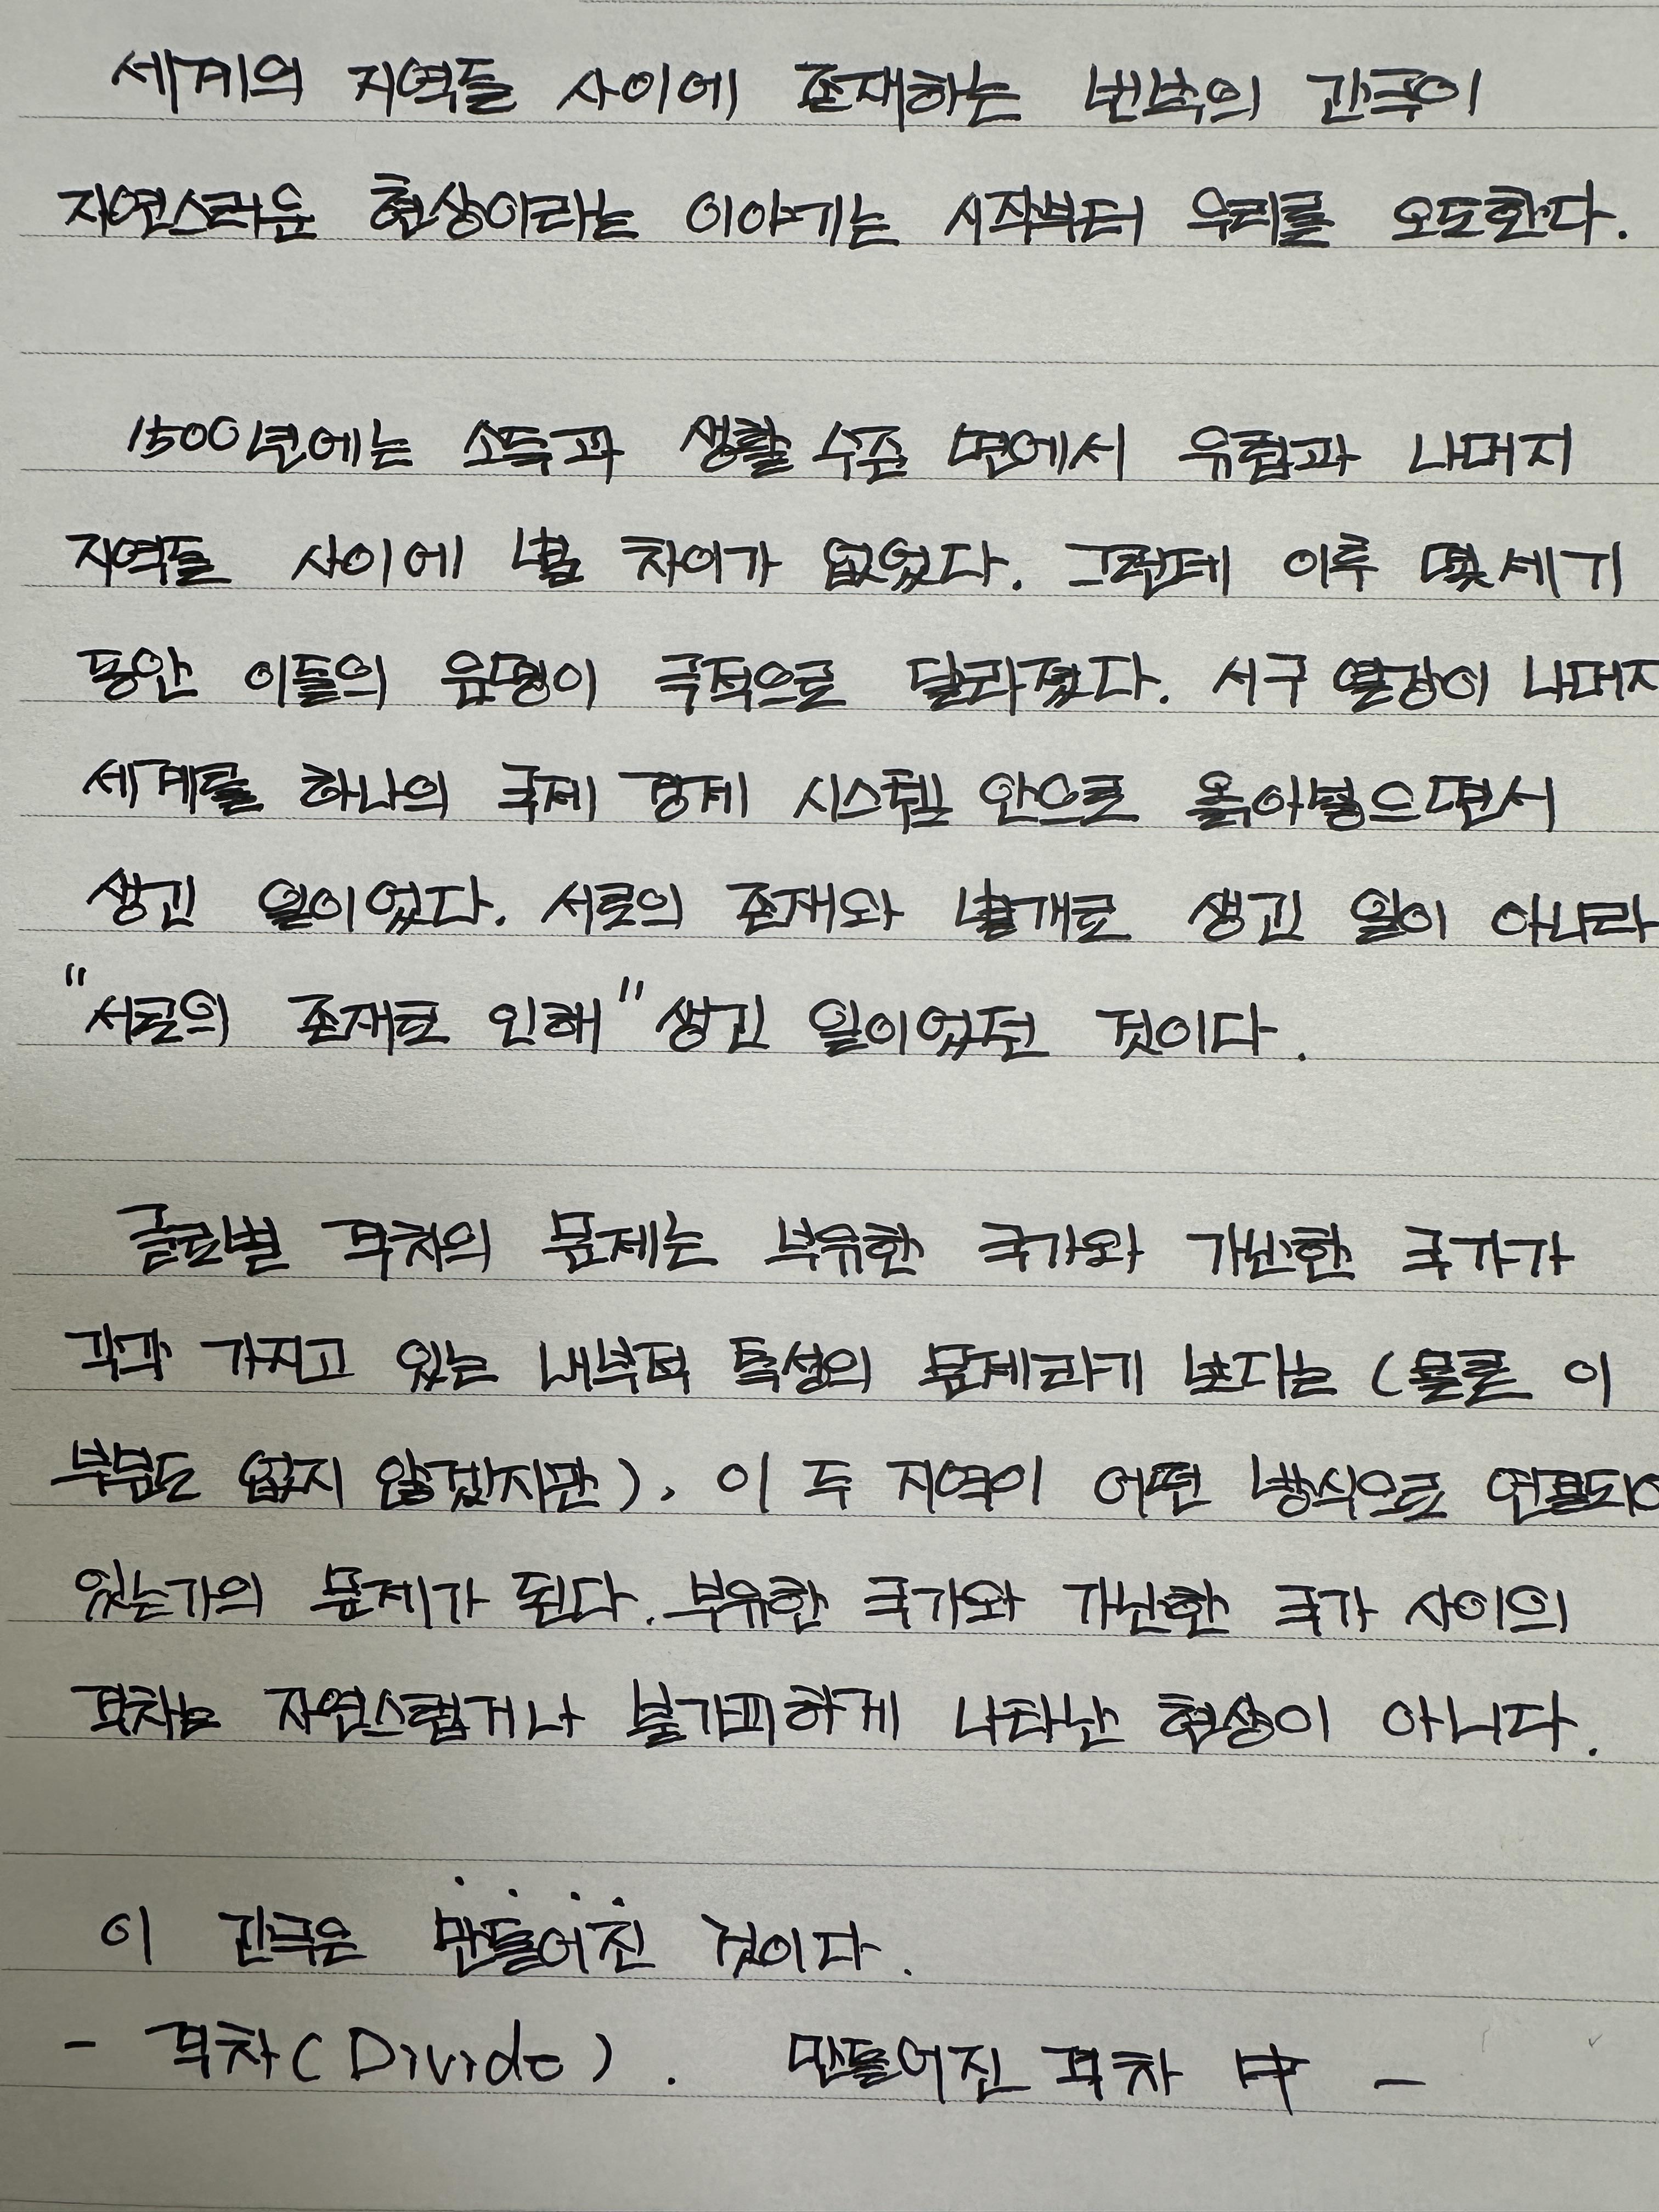 세계의 지역들 사이에 존재하는 번복의 간극이
자연스러운 현상이라는 이야기는 시작부터 우리를 오도한다.
1500년에는 소득과 생활 수준 면에서 유럽과 나머지
지역들 사이에 별 차이가 없었다. 그런데 이후 몇세기
동안 이들의 운명이 극적으로 달라졌다. 서구 열강이 나머지
세계를 하나의 국제 경제 시스템 안으로 옭아넣으면서
생긴 일이었다. 서로의 존재와 별개로 생긴 일이 아니라
"서로의 존재로 인해" 생긴 일이었던 것이다.
글로벌 격차의 문제는 부유한 국가와 가난한 국가가
각각 가지고 있는 내부적 특성의 문제라기 보다는 (물론 이
부분도 없지 않겠지만), 이 두 지역이 어떤 방식으로 연결되어
있는가의 문제가 된다. 부유한 국가와 가난한 국가 사이의
격차는 자연스럽거나 불가피하게 나타난 현상이 아니다.
이 간극은 만들어진 것이다.
- 격차(Divide). 만들어진 격차 中 -